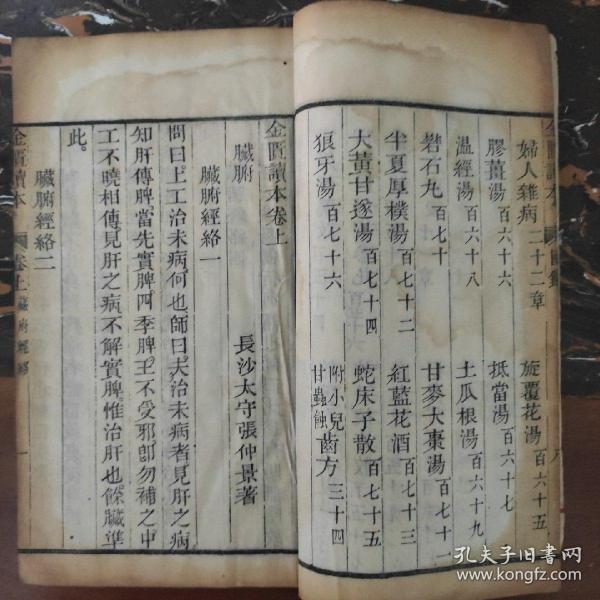 婦人雜病二十二章
旋覆花湯百六十五
膠薑湯百六十六
抵當湯百六十七
溫經湯百六十八
土瓜根湯百六十九
礬石丸百七十
甘麥大棗湯百七十一
半夏厚樸湯百七十二
紅藍花酒百七十三
大黃甘遂湯百七十四
蛇床子散百七十五
狼牙湯百七十六
附小兒甘蟲蝕齒方三十四
金匱讀本卷上
長沙太守張仲景著
臟腑
臟腑經絡一
問曰上工治未病何也師曰夫治未病者見肝之病
知肝傳脾當先實脾四季脾王不受邪即勿補之中
工不曉相傳見肝之病不解實脾惟治肝也餘臟準
此
臟腑經絡二
金匱讀本 卷上 臟腑經絡 一
孔夫子旧书网
www.kongfz.com